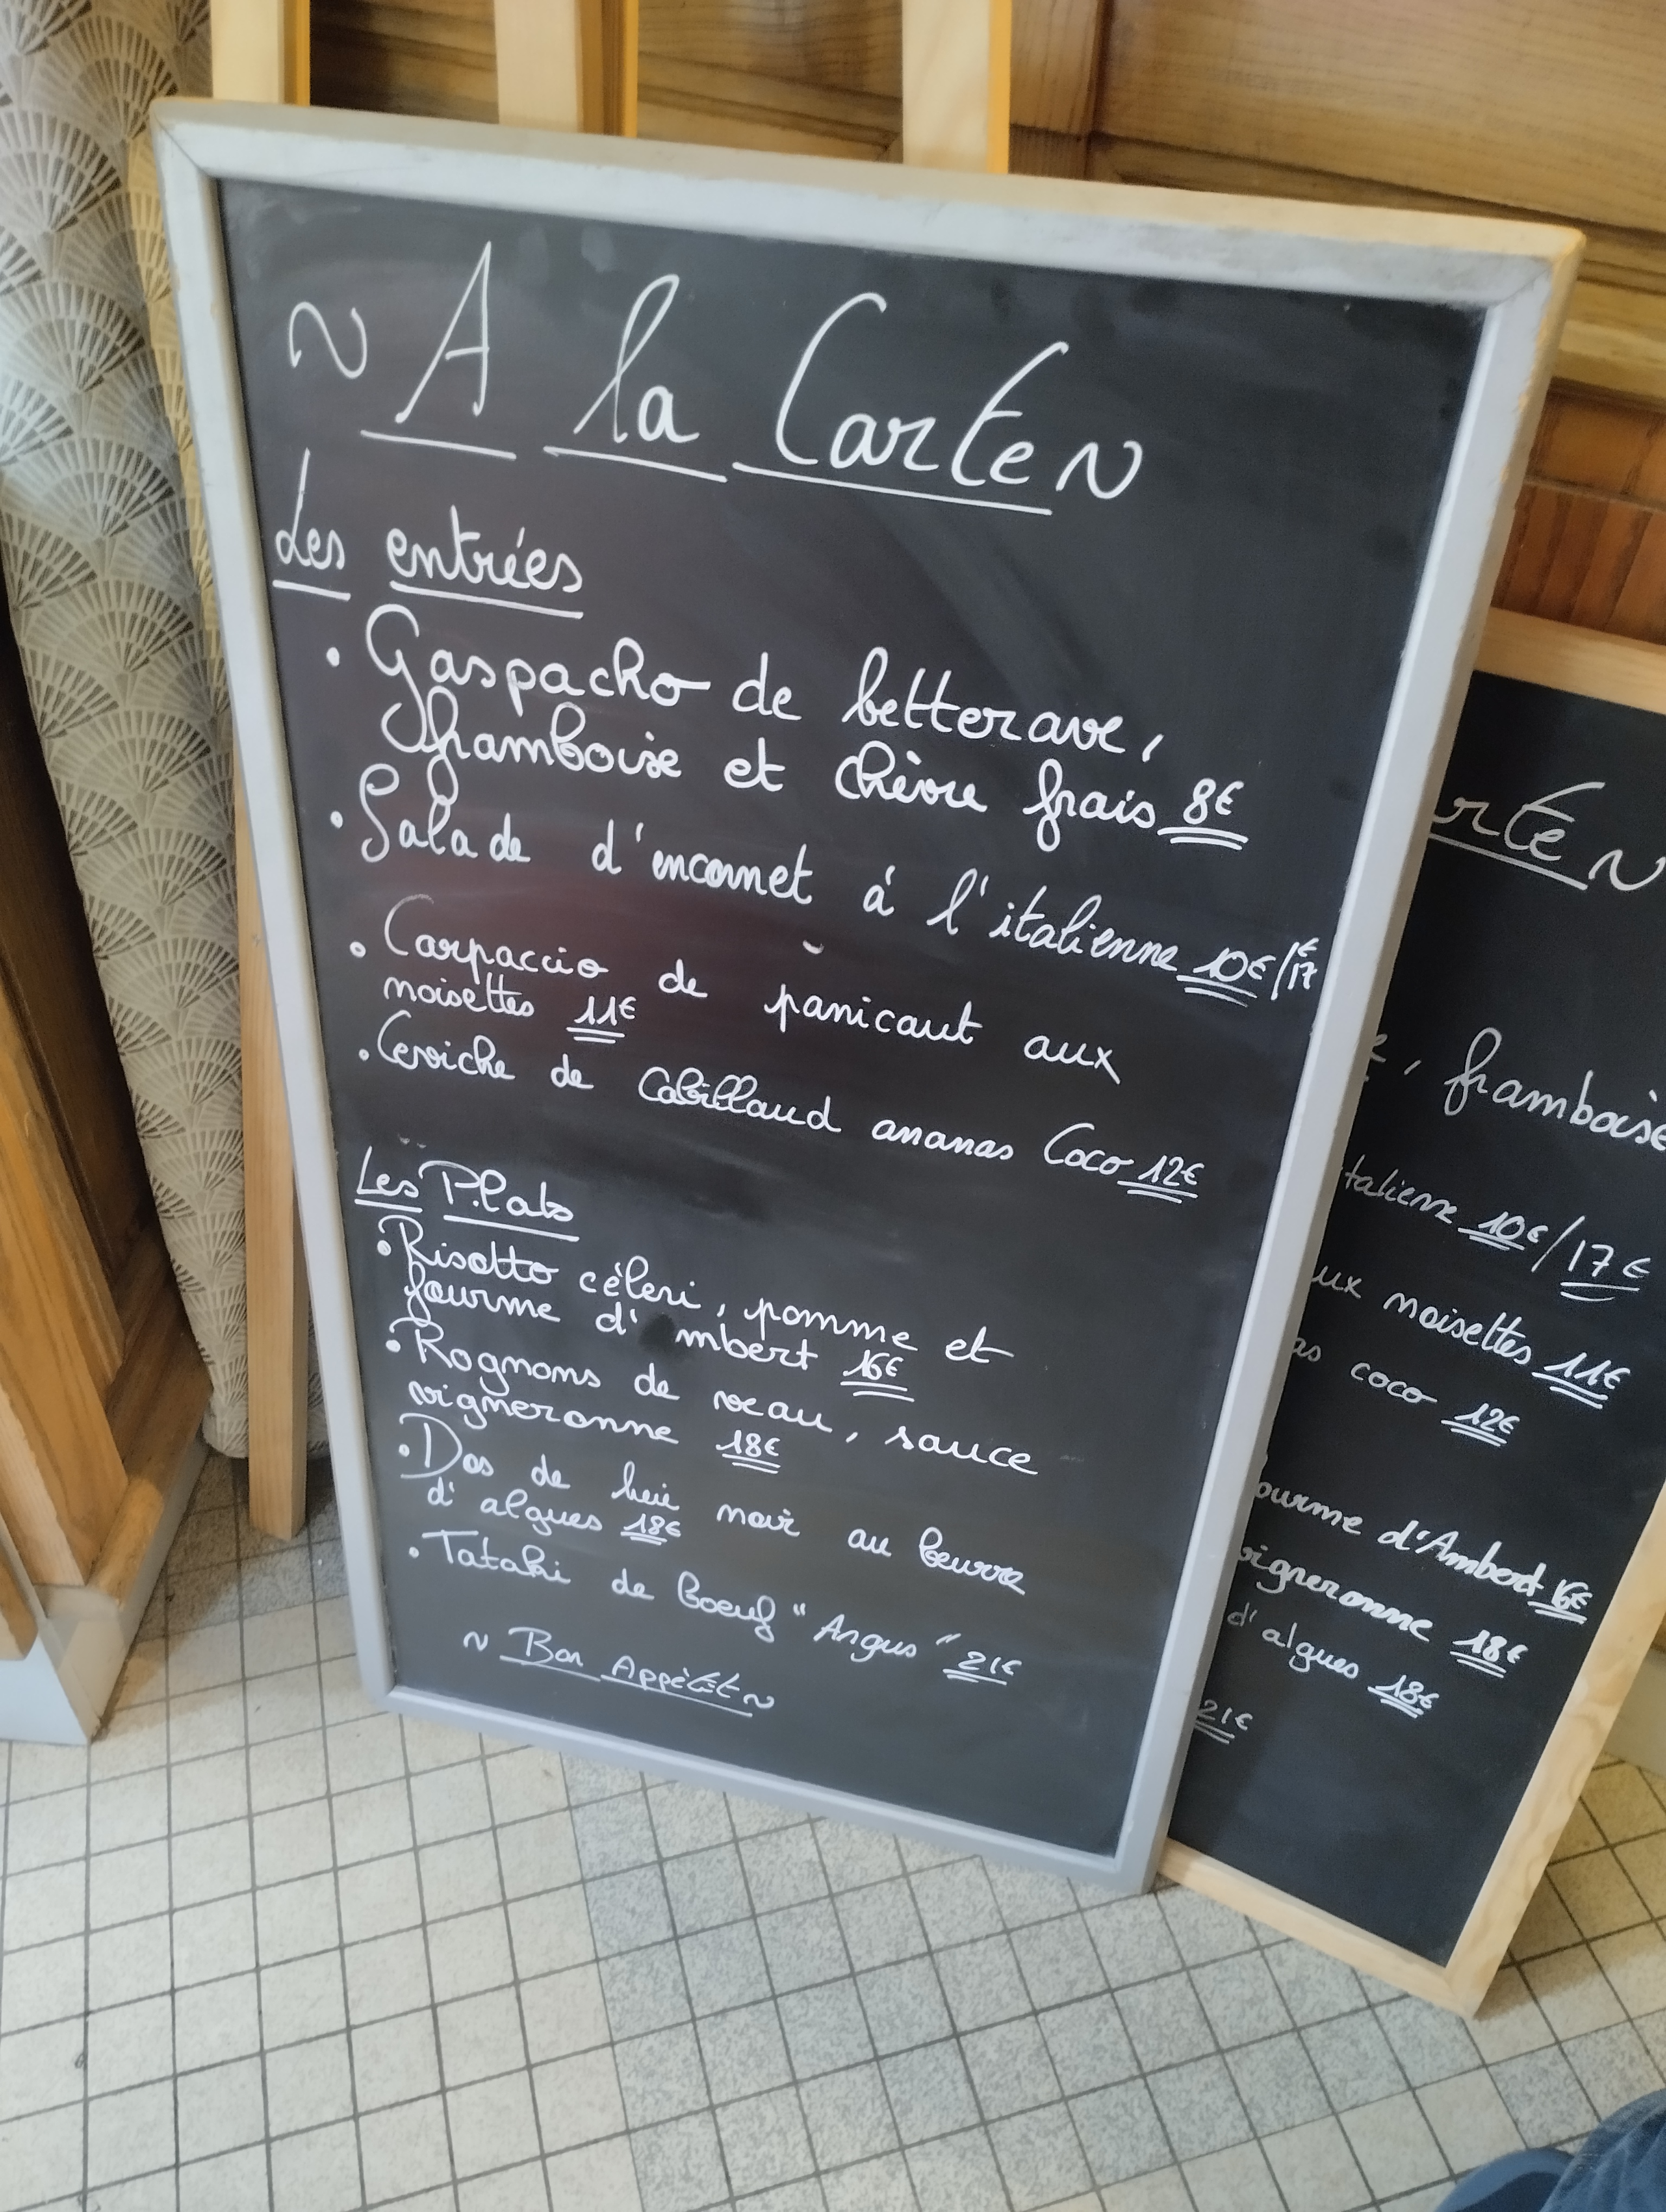 ~ A la Carte ~
Les entrées
• Gaspacho de betterave,
framboise et chèvre frais 8€
• Salade d'encornet à l'italienne 10€/17€
• Carpaccio de panicaut aux
noisettes 11€
• Ceviche de Cabillaud ananas Coco 12€
Les Plats
• Risotto céleri, pomme et
fourme d' mbert 16€
• Rognons de veau, sauce
vigneronne 18€
• Dos de lieu noir au beurre
d'algues 18€
• Tataki de boeuf "Angus" 21€
~ Bon Appétit ~
arte ~
, framboise
italienne 10€/17€
aux noisettes 11€
as coco 12€
fourme d'Ambert 16€
vigneronne 18€
d'algues 18€
21€